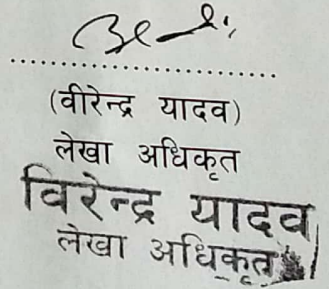 (वीरेन्द्र यादव)
लेखा अधिकृत
विरेन्द्र यादव
लेखा अधिकृत